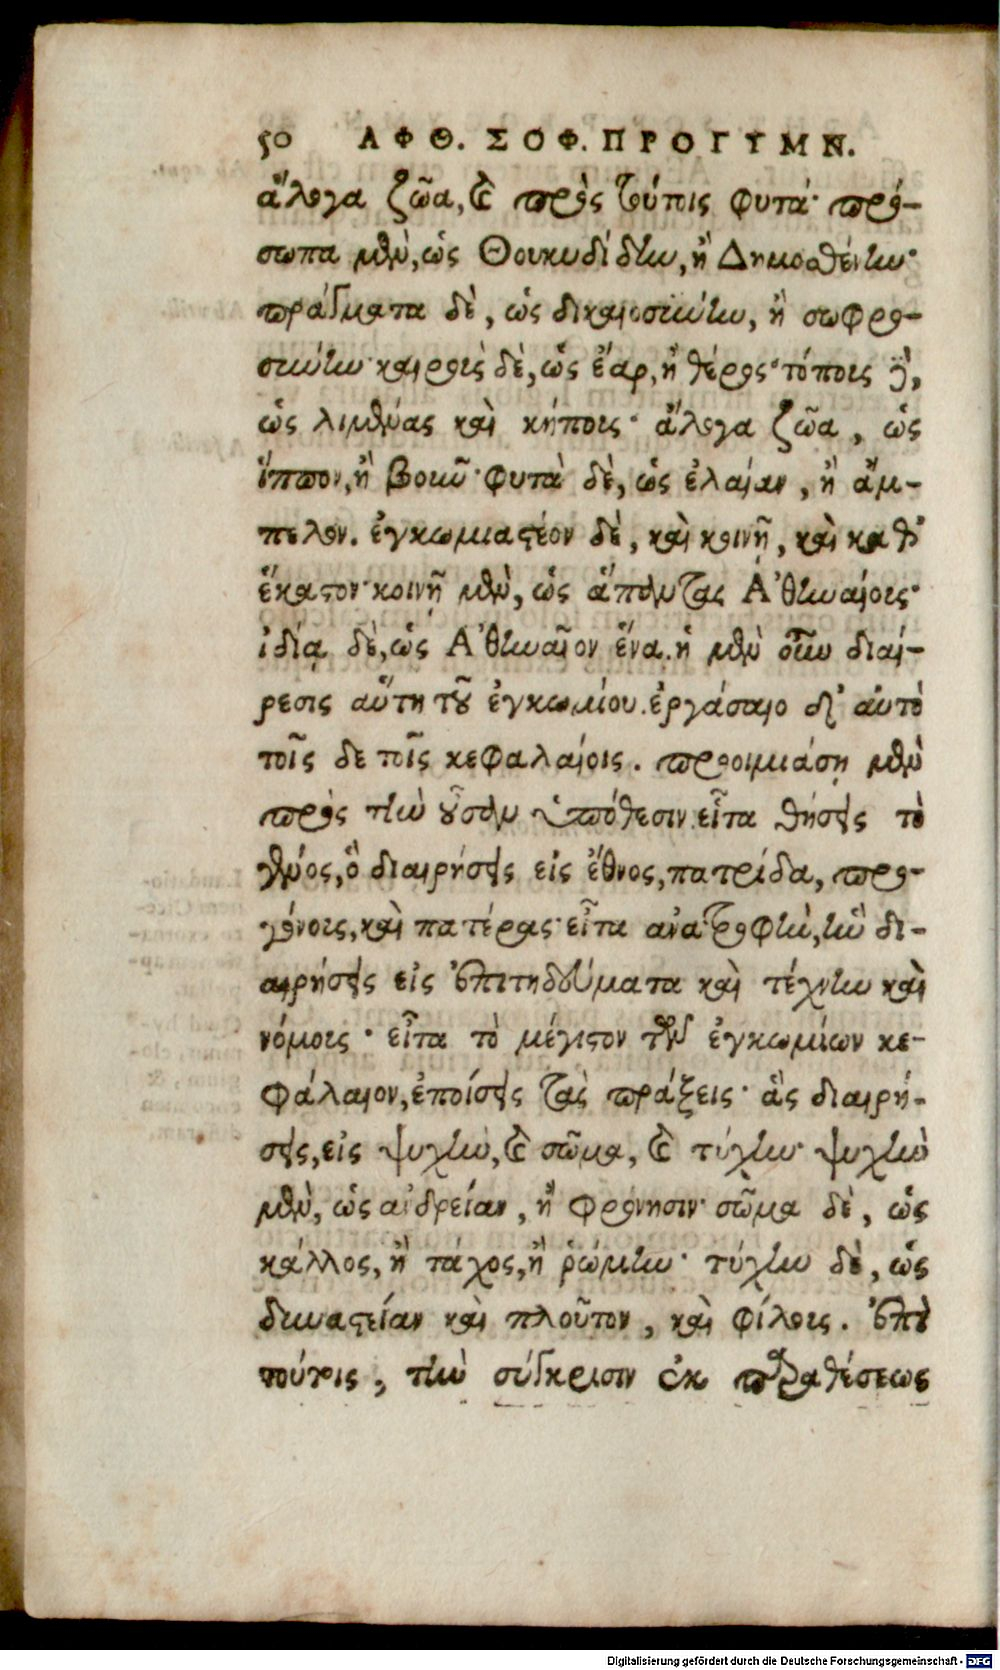 50 ΑΦΘ. ΣΟΦ. ΠΡΟΓΥΜΝ.
ἄλογα ζῶα, καὶ πρὸς τούτοις φυτά· πρό-
σωπα μὲν, ὡς Θουκυδίδην, ἢ Δημοσθένην·
πράγματα δὲ, ὡς δικαιοσύνην, ἢ σωφρο-
σύνην· καιροὺς δὲ, ὡς ἔαρ, ἢ θέρος· τόπους δὲ,
ὡς λιμένας καὶ κήπους· ἄλογα ζῶα, ὡς
ἵππον, ἢ βοῦν· φυτὰ δὲ, ὡς ἐλαίαν, ἢ ἄμ-
πελον. ἐγκωμιαστέον δὲ, καὶ κοινῇ, καὶ καθ'
ἕκαστον· κοινῇ μὲν, ὡς ἅπαντας Ἀθηναίους·
ἰδίᾳ δὲ, ὡς Ἀθηναῖον ἕνα. ἡ μὲν οὖν διαί-
ρεσις αὕτη τοῦ ἐγκωμίου. ἐργάσαιο δ' αὐτὸ
τοῖς δε τοῖς κεφαλαίοις. προοιμιάσῃ μὲν
πρὸς τὴν οὖσαν ὑπόθεσιν. εἶτα θήσεις τὸ
γένος, ὃ διαιρήσεις εἰς ἔθνος, πατρίδα, προ-
γόνους, καὶ πατέρας· εἶτα ἀνατροφὴν, ἣν δι-
αιρήσεις εἰς ἐπιτηδεύματα καὶ τέχνην καὶ
νόμους· εἶτα τὸ μέγιστον τῶν ἐγκωμίων κε-
φάλαιον, ἐποίσεις τὰς πράξεις· ἃς διαιρή-
σεις, εἰς ψυχὴν, καὶ σῶμα, καὶ τύχην· ψυχὴν
μὲν, ὡς ἀνδρείαν, ἢ φρόνησιν· σῶμα δὲ, ὡς
κάλλος, ἢ τάχος, ἢ ῥώμην· τύχην δὲ, ὡς
δυναστείαν καὶ πλοῦτον, καὶ φίλους. ἐπὶ
τούτοις, τὴν σύγκρισιν ἐκ παραθέσεως
Digitalisierung gefördert durch die Deutsche Forschungsgemeinschaft - DFG